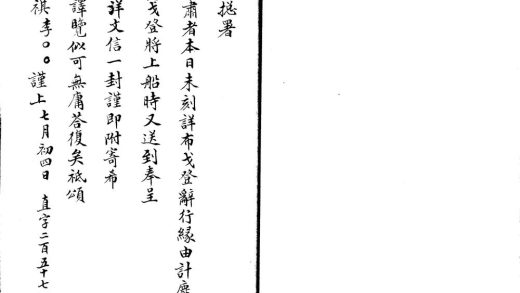 摠署
肅者本日未刻詳布戈登辭行緣由計塵
戈登將上船時又送到奉呈
詳文信一封謹即附寄希
譯覽似可無庸荅復矣祗頌
祺李○○謹上七月初四日 直字二百五十七